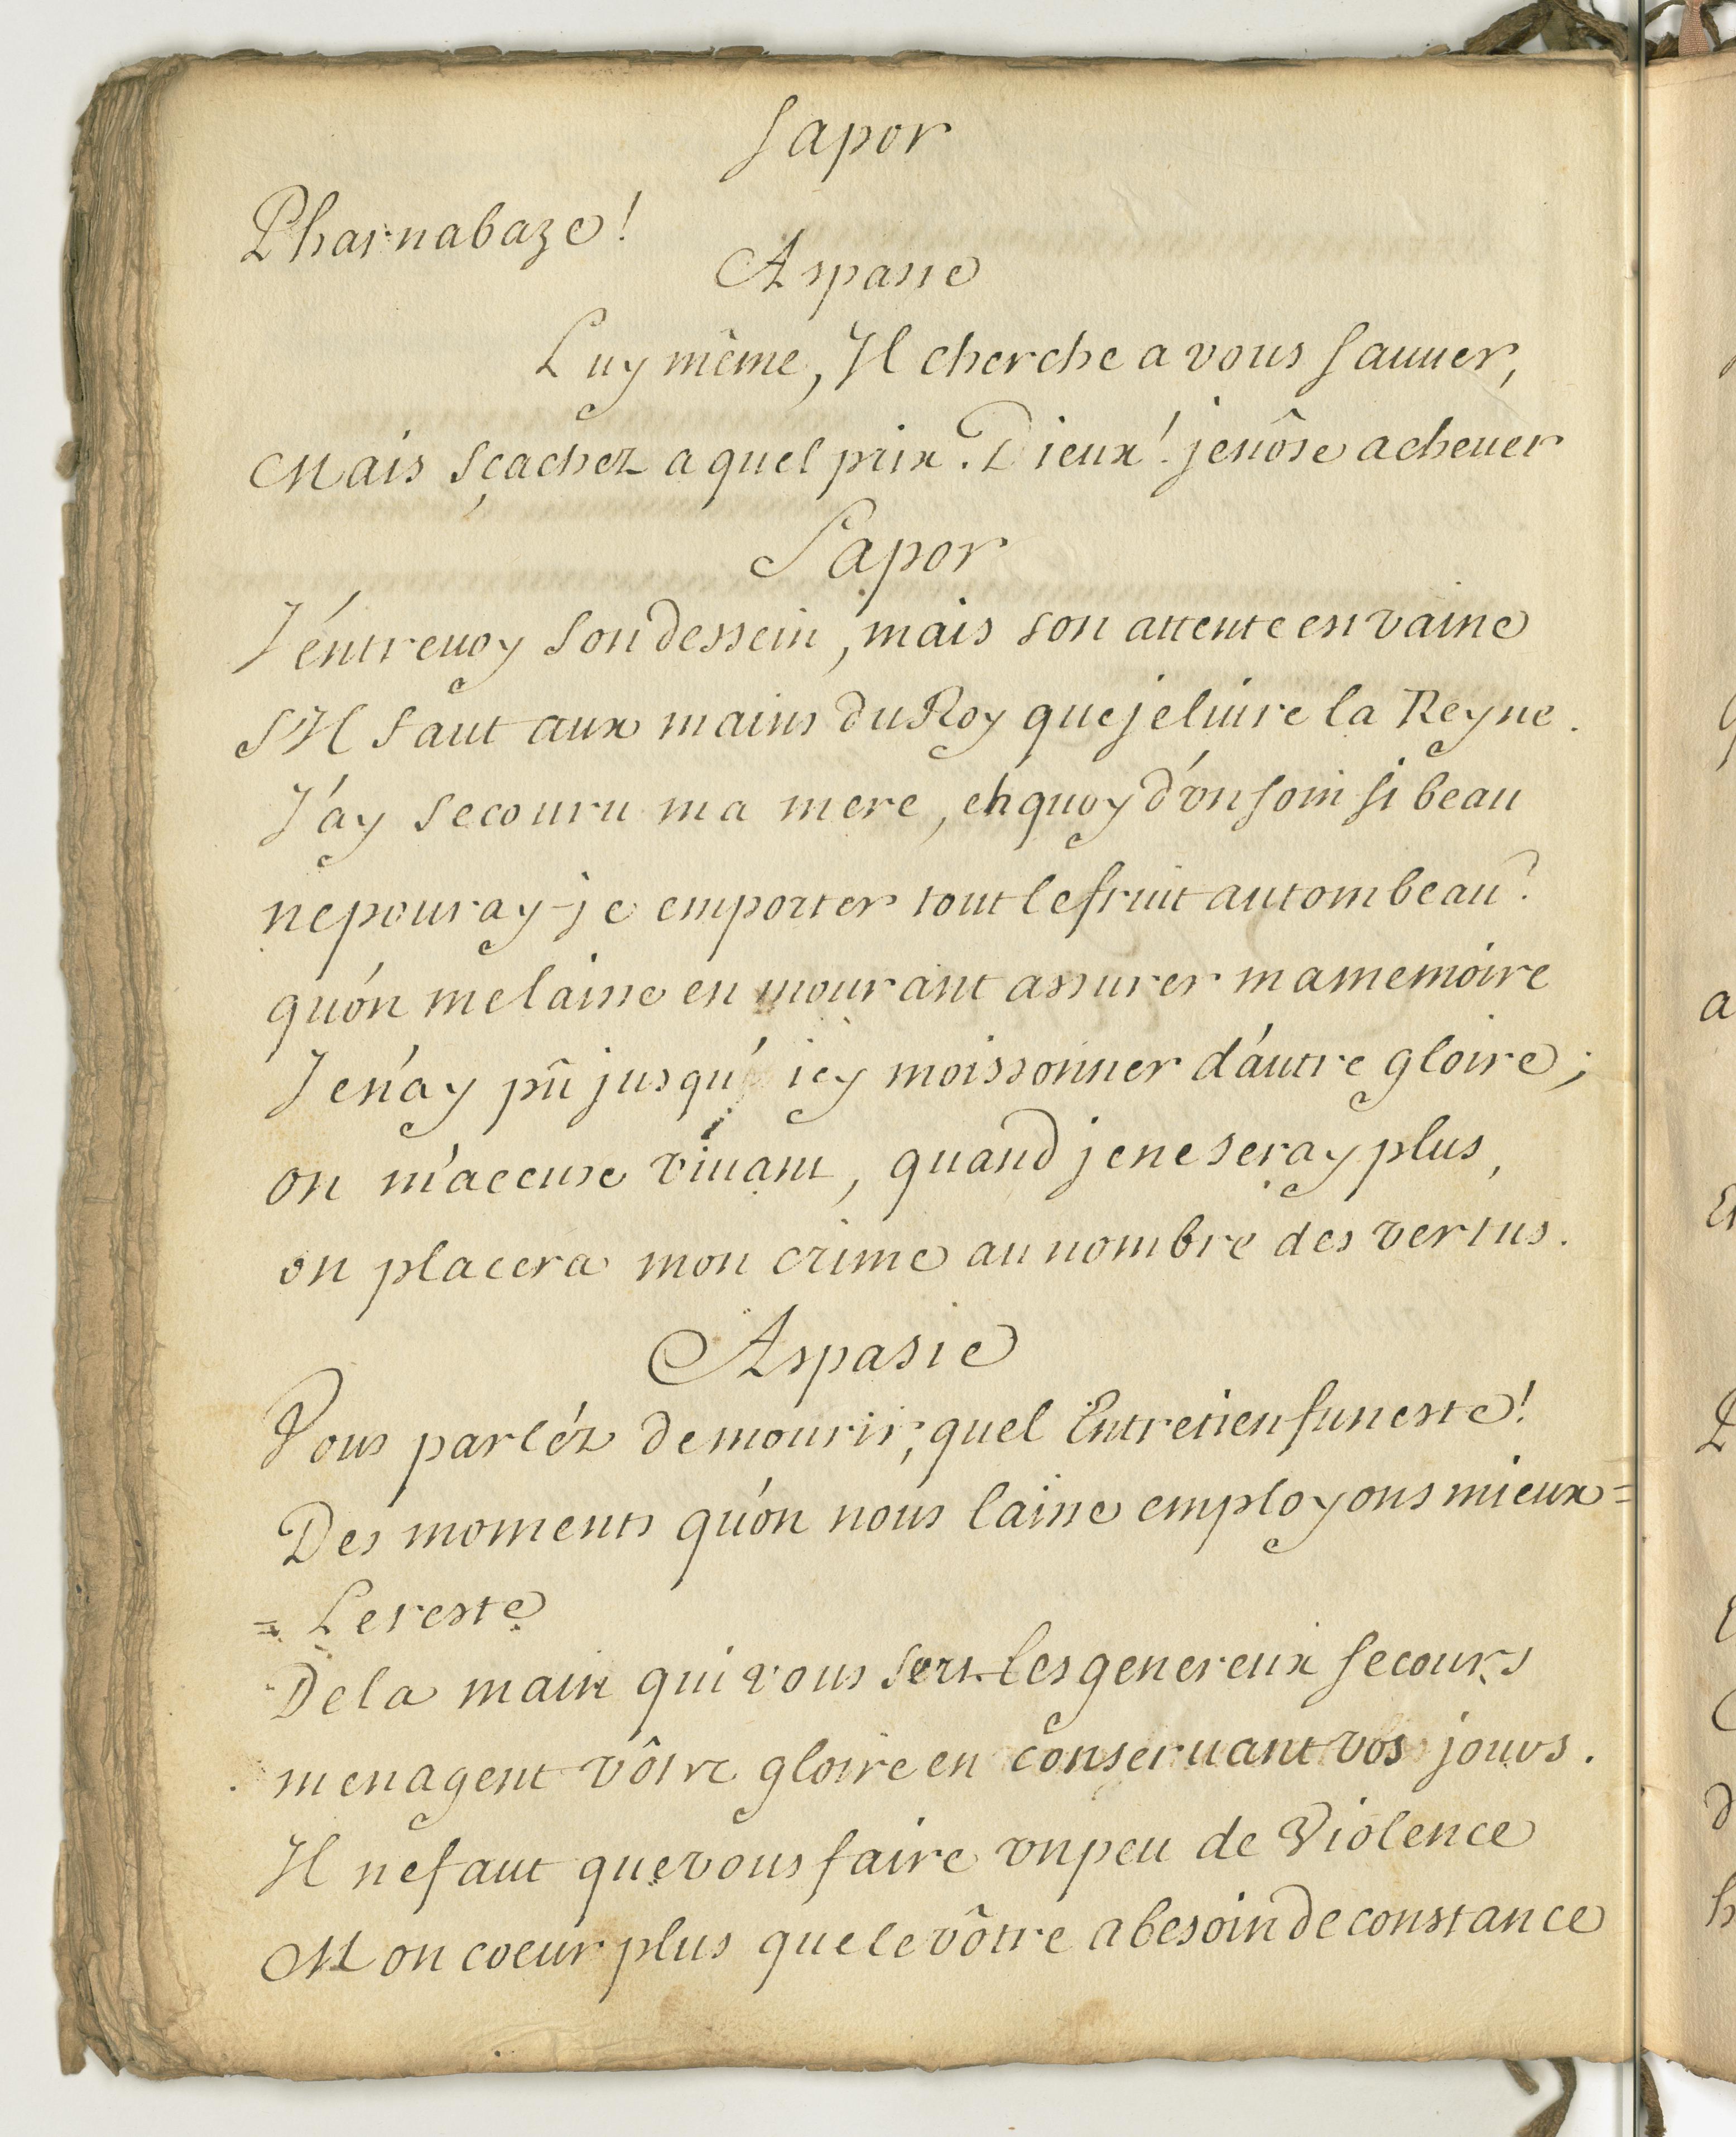 Sapor
Pharnabaze!
Aspasie
Luy même, Il cherche a vous sauuer,
Mais sçachez a quel prix. Dieux! je nôse acheuer
Sapor
J'éntreuoy son dessein, mais son attente est vaine
S'Il faut aux mains du Roy que je liure la Reyne.
J'ay secouru ma mere, eh quoy d'vn soin si beau
ne pouray-je emporter tout le fruit au tombeau?
qu'on me laisse en mourant assurer ma memoire
Je n'ay pû jusqu' icy moissonner d'autre gloire;
on m'accuse viuant, quand je ne seray plus,
on placera mon crime au nombre des vertus.
Aspasie
Vous parléz de mourir; quel Entretien funeste!
Des moments qu'on nous laisse employons mieux=
= Le reste
De la main qui vous sert les genereux secours
menagent vôtre gloire en conseruant vos jours.
Il ne faut que vous faire vn peu de Violence
Mon coeur plus que le vôtre a besoin de constance